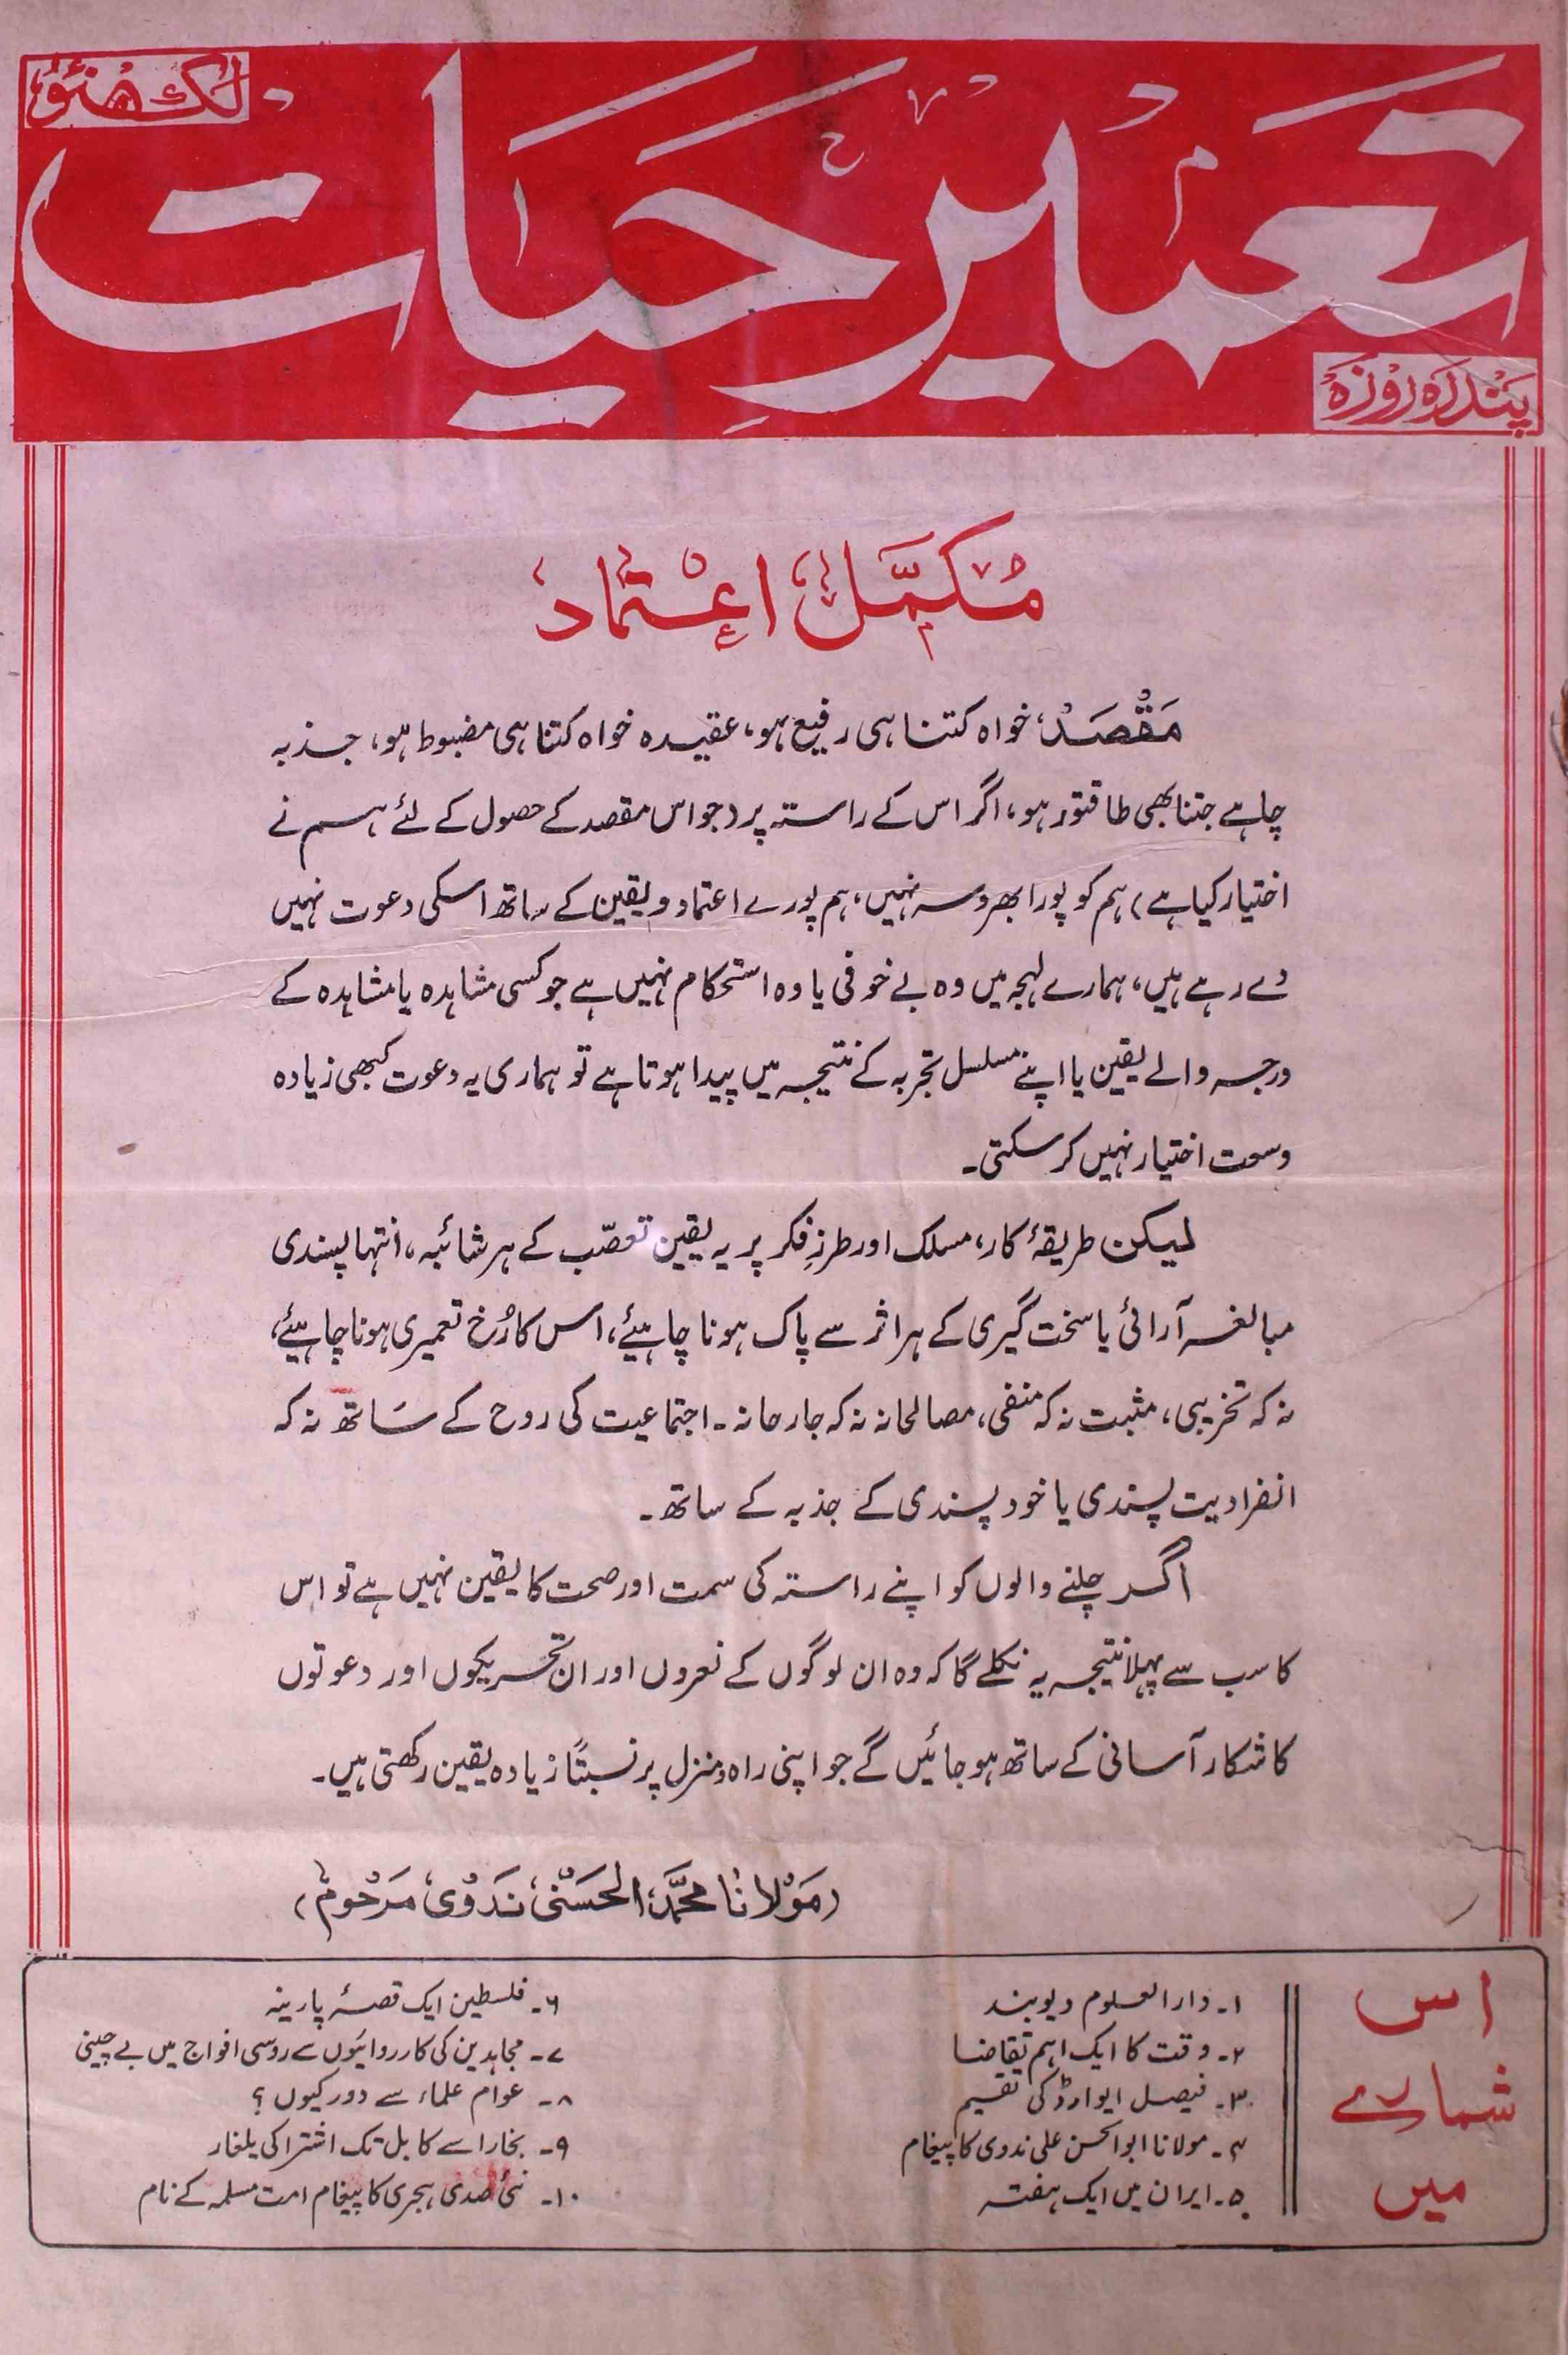 لکھنؤ
تعمیر حیات
پندرہ روزہ
مکمل اعتماد
مقصد خواہ کتنا ہی رفیع ہو، عقیدہ خواہ کتنا ہی مضبوط ہو، جذبہ
چاہے جتنا بھی طاقتور ہو، اگر اس کے راستہ پر (جو اس مقصد کے حصول کے لئے ہم نے
اختیار کیا ہے) ہم کو پورا بھروسہ نہیں، ہم پورے اعتماد و یقین کے ساتھ اسکی دعوت نہیں
دے رہے ہیں، ہمارے لہجہ میں وہ بے خوفی یا وہ استحکام نہیں ہے جو کسی مشاہدہ یا مشاہدہ کے
درجہ والے یقین یا اپنے مسلسل تجربہ کے نتیجہ میں پیدا ہوتا ہے تو ہماری یہ دعوت کبھی زیادہ
وسعت اختیار نہیں کر سکتی۔
لیکن طریقۂ کار، مسلک اور طرزِ فکر پر یہ یقین تعصّب کے ہر شائبہ، انتہا پسندی
مبالغہ آرائی یا سخت گیری کے ہر اثر سے پاک ہونا چاہیئے، اس کا رُخ تعمیری ہونا چاہیئے،
نہ کہ تخریبی، مثبت نہ کہ منفی، مصالحانہ نہ کہ جارحانہ۔ اجتماعیت کی روح کے ساتھ نہ کہ
انفرادیت پسندی یا خود پسندی کے جذبہ کے ساتھ۔
اگر چلنے والوں کو اپنے راستہ کی سمت اور صحت کا یقین نہیں ہے تو اس
کا سب سے پہلا نتیجہ یہ نکلے گا کہ وہ ان لوگوں کے نعروں اور ان تحریکوں اور دعوتوں
کا شکار آسانی کے ساتھ ہو جائیں گے جو اپنی راہ و منزل پر نسبتاً زیادہ یقین رکھتی ہیں۔
(مولانا محمد الحسنی ندوی مرحوم)
اس
شمارے
میں
۱۔ دارالعلوم دیوبند
۲۔ وقت کا ایک اہم تقاضا
۳۔ فیصل ایوارڈ کی تقسیم
۴۔ مولانا ابوالحسن علی ندوی کا پیغام
۵۔ ایران میں ایک ہفتہ
۶۔ فلسطین ایک قصۂ پارینہ
۷۔ مجاہدین کی کارروائیوں سے روسی افواج میں بے چینی
۸۔ عوام علماء سے دور کیوں ؟
۹۔ بخارا سے کابل تک اشتراکی یلغار
۱۰۔ نئی صدی ہجری کا پیغام امت مسلمہ کے نام